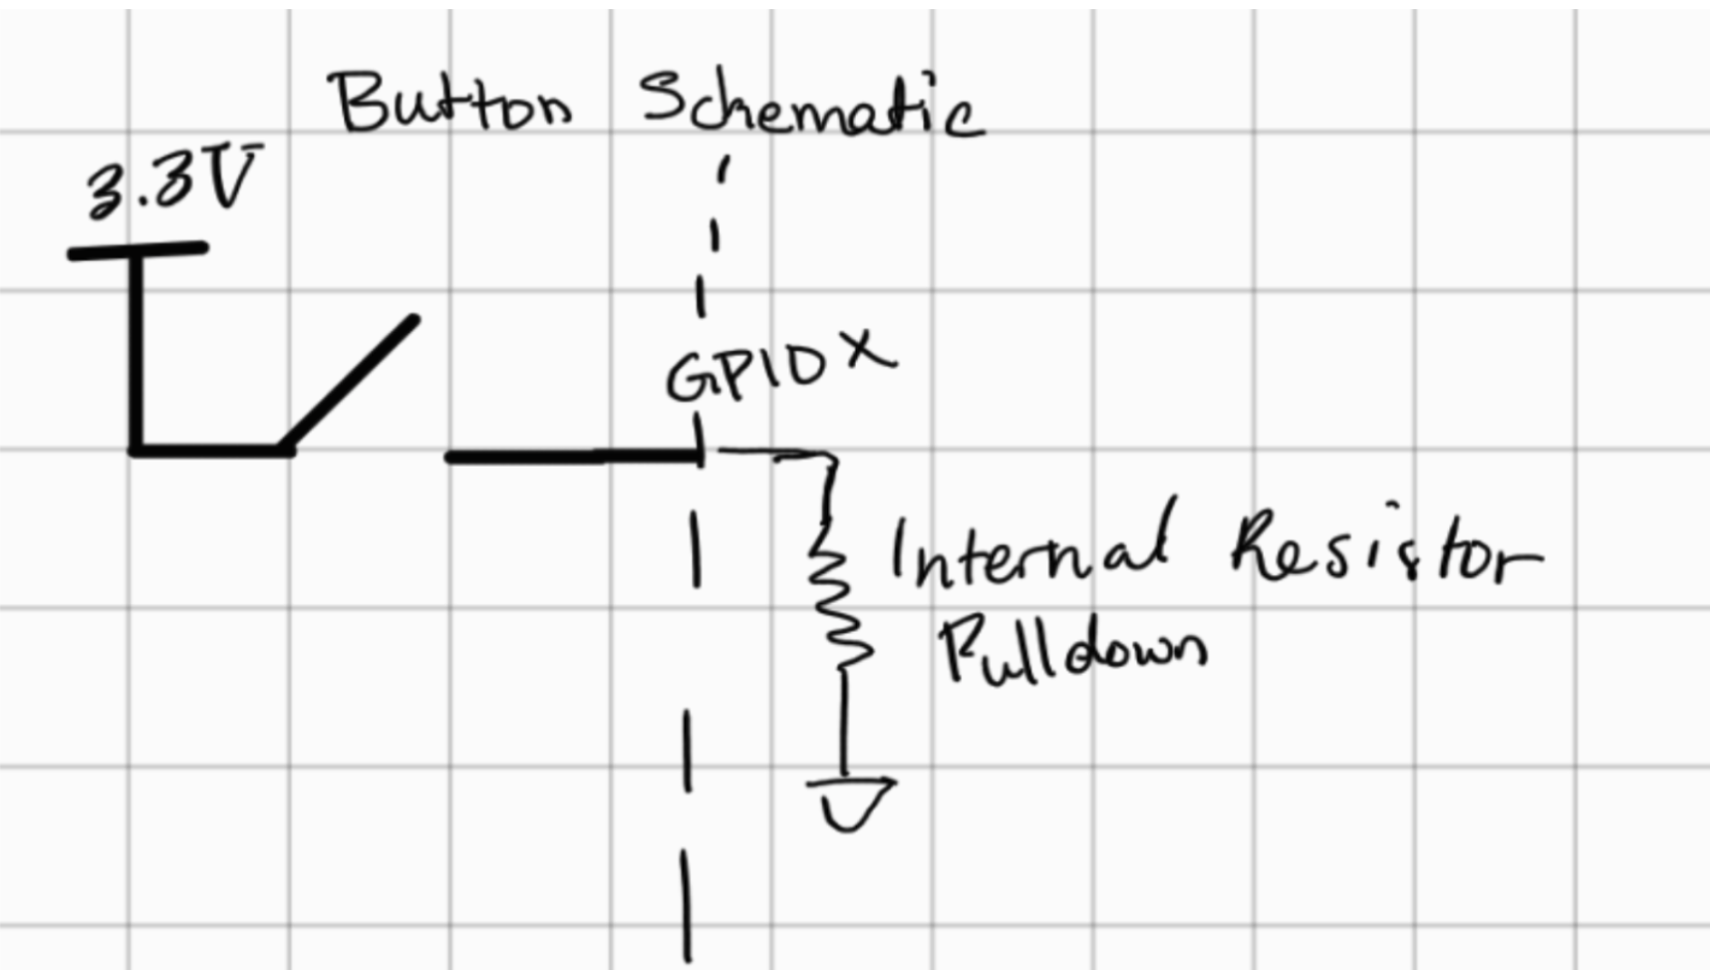 Button Schematic
3.3V
GPIO X
Internal Resistor
Pulldown